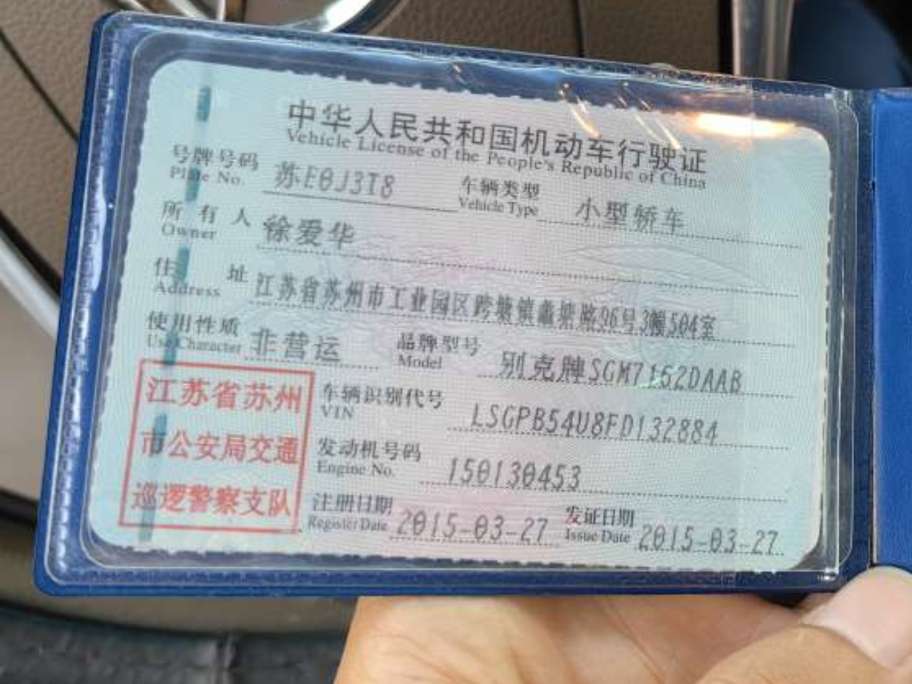 中华人民共和国机动车行驶证
Vehicle License of the People's Republic of China
号牌号码 苏E0J3T8 车辆类型 小型轿车
Plate No. Vehicle Type
所有人 徐爱华
Owner
住址 江苏省苏州市工业园区跨塘镇蠡塘路96号3幢504室
Address
使用性质 非营运 品牌型号 别克牌SGM7162DAAB
Use Character Model
江苏省苏州
市公安局交通
巡逻警察支队
车辆识别代号 LSGPB54U8FD132884
VIN
发动机号码 150130453
Engine No.
注册日期 2015-03-27 发证日期 2015-03-27
Register Date Issue Date